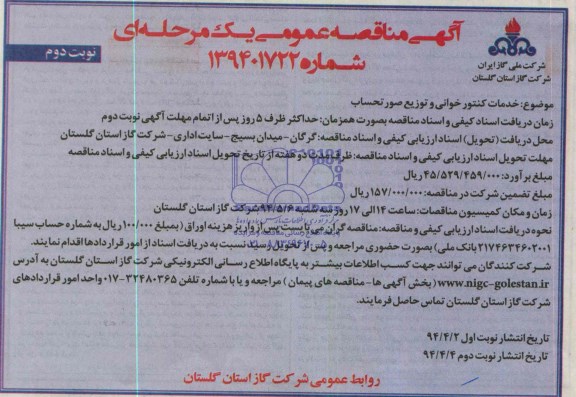 آگهی مناقصه عمومی یک مرحله‌ای
شماره ۱۳۹۴۰۱۷۲۲
نوبت دوم
شرکت ملی گاز ایران
شرکت گاز استان گلستان
موضوع: خدمات کنتور خوانی و توزیع صورتحساب
زمان دریافت اسناد کیفی و اسناد مناقصه بصورت همزمان: حداکثر ظرف ۵ روز پس از اتمام مهلت آگهی نوبت دوم
محل دریافت (تحویل) اسناد ارزیابی کیفی و اسناد مناقصه: گرگان - میدان بسیج - سایت اداری - شرکت گاز استان گلستان
مهلت تحویل اسناد ارزیابی کیفی و اسناد مناقصه: ظرف مدت دو هفته از تاریخ تحویل اسناد ارزیابی کیفی و اسناد مناقصه
مبلغ برآورد: ۴۵/۵۲۹/۴۵۹/۰۰۰ ریال
مبلغ تضمین شرکت در مناقصه: ۱۵۷/۰۰۰/۰۰۰ ریال
زمان و مکان کمیسیون مناقصات: ساعت ۱۴ الی ۱۷ روز سه شنبه ۹۴/۵/۶ شرکت گاز استان گلستان
نحوه دریافت اسناد ارزیابی کیفی و اسناد مناقصه: مناقصه گران می بایست پس از واریز هزینه اوراق (بمبلغ ۱۰۰/۰۰۰ ریال به شماره حساب سیبا
۲۱۷۴۶۳۴۶۰۲۰۰۱ بانک ملی) بصورت حضوری مراجعه و پس از ارائه رسید نسبت به دریافت اسناد از امور قراردادها اقدام نمایند.
شرکت کنندگان می توانند جهت کسب اطلاعات بیشتر به پایگاه اطلاع رسانی الکترونیکی شرکت گاز استان گلستان به آدرس
www.nigc-golestan.ir (بخش آگهی ها - مناقصه های پیمان) مراجعه و یا با شماره تلفن ۳۲۴۸۰۳۶۵-۰۱۷ واحد امور قراردادهای
شرکت گاز استان گلستان تماس حاصل فرمایند.
تاریخ انتشار نوبت اول ۹۴/۴/۲
تاریخ انتشار نوبت دوم ۹۴/۴/۴
روابط عمومی شرکت گاز استان گلستان